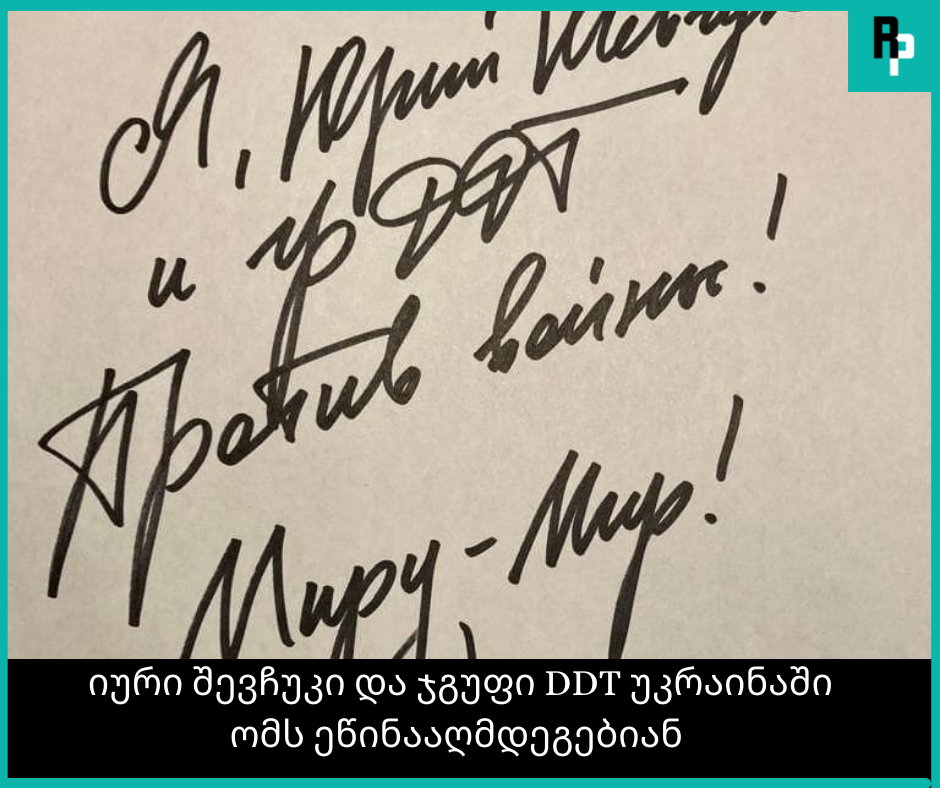 RP
Я, Юрий Шевчук
и гр ДДТ
Против войны!
Миру-Мир!
იური შევჩუკი და ჯგუფი DDT უკრაინაში
ომს ეწინააღმდეგებიან